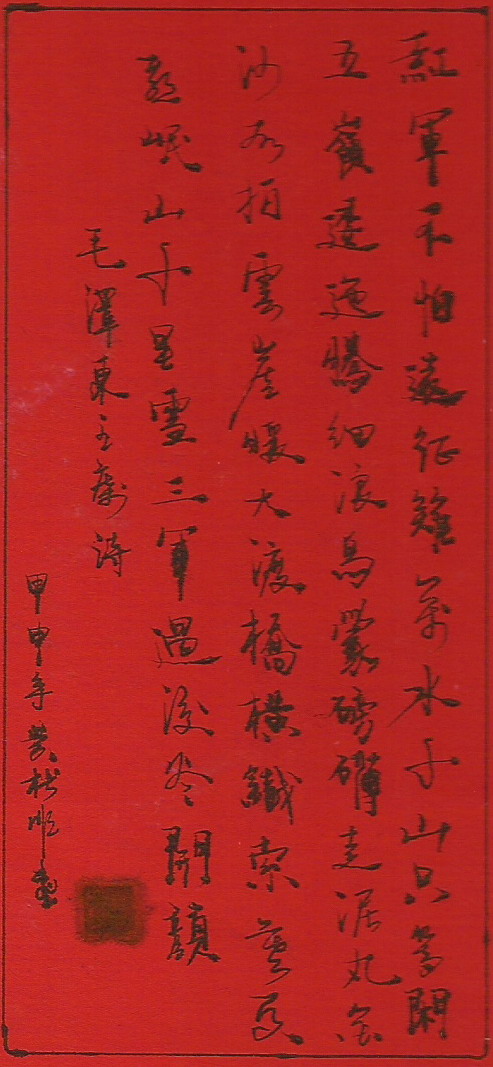 紅軍不怕遠征難萬水千山只等閑
五嶺逶迤騰細浪烏蒙磅礴走泥丸金
沙水拍雲崖暖大渡橋橫鐵索寒更
喜岷山千里雪三軍過後盡開顏
毛澤東主席詩
甲申年